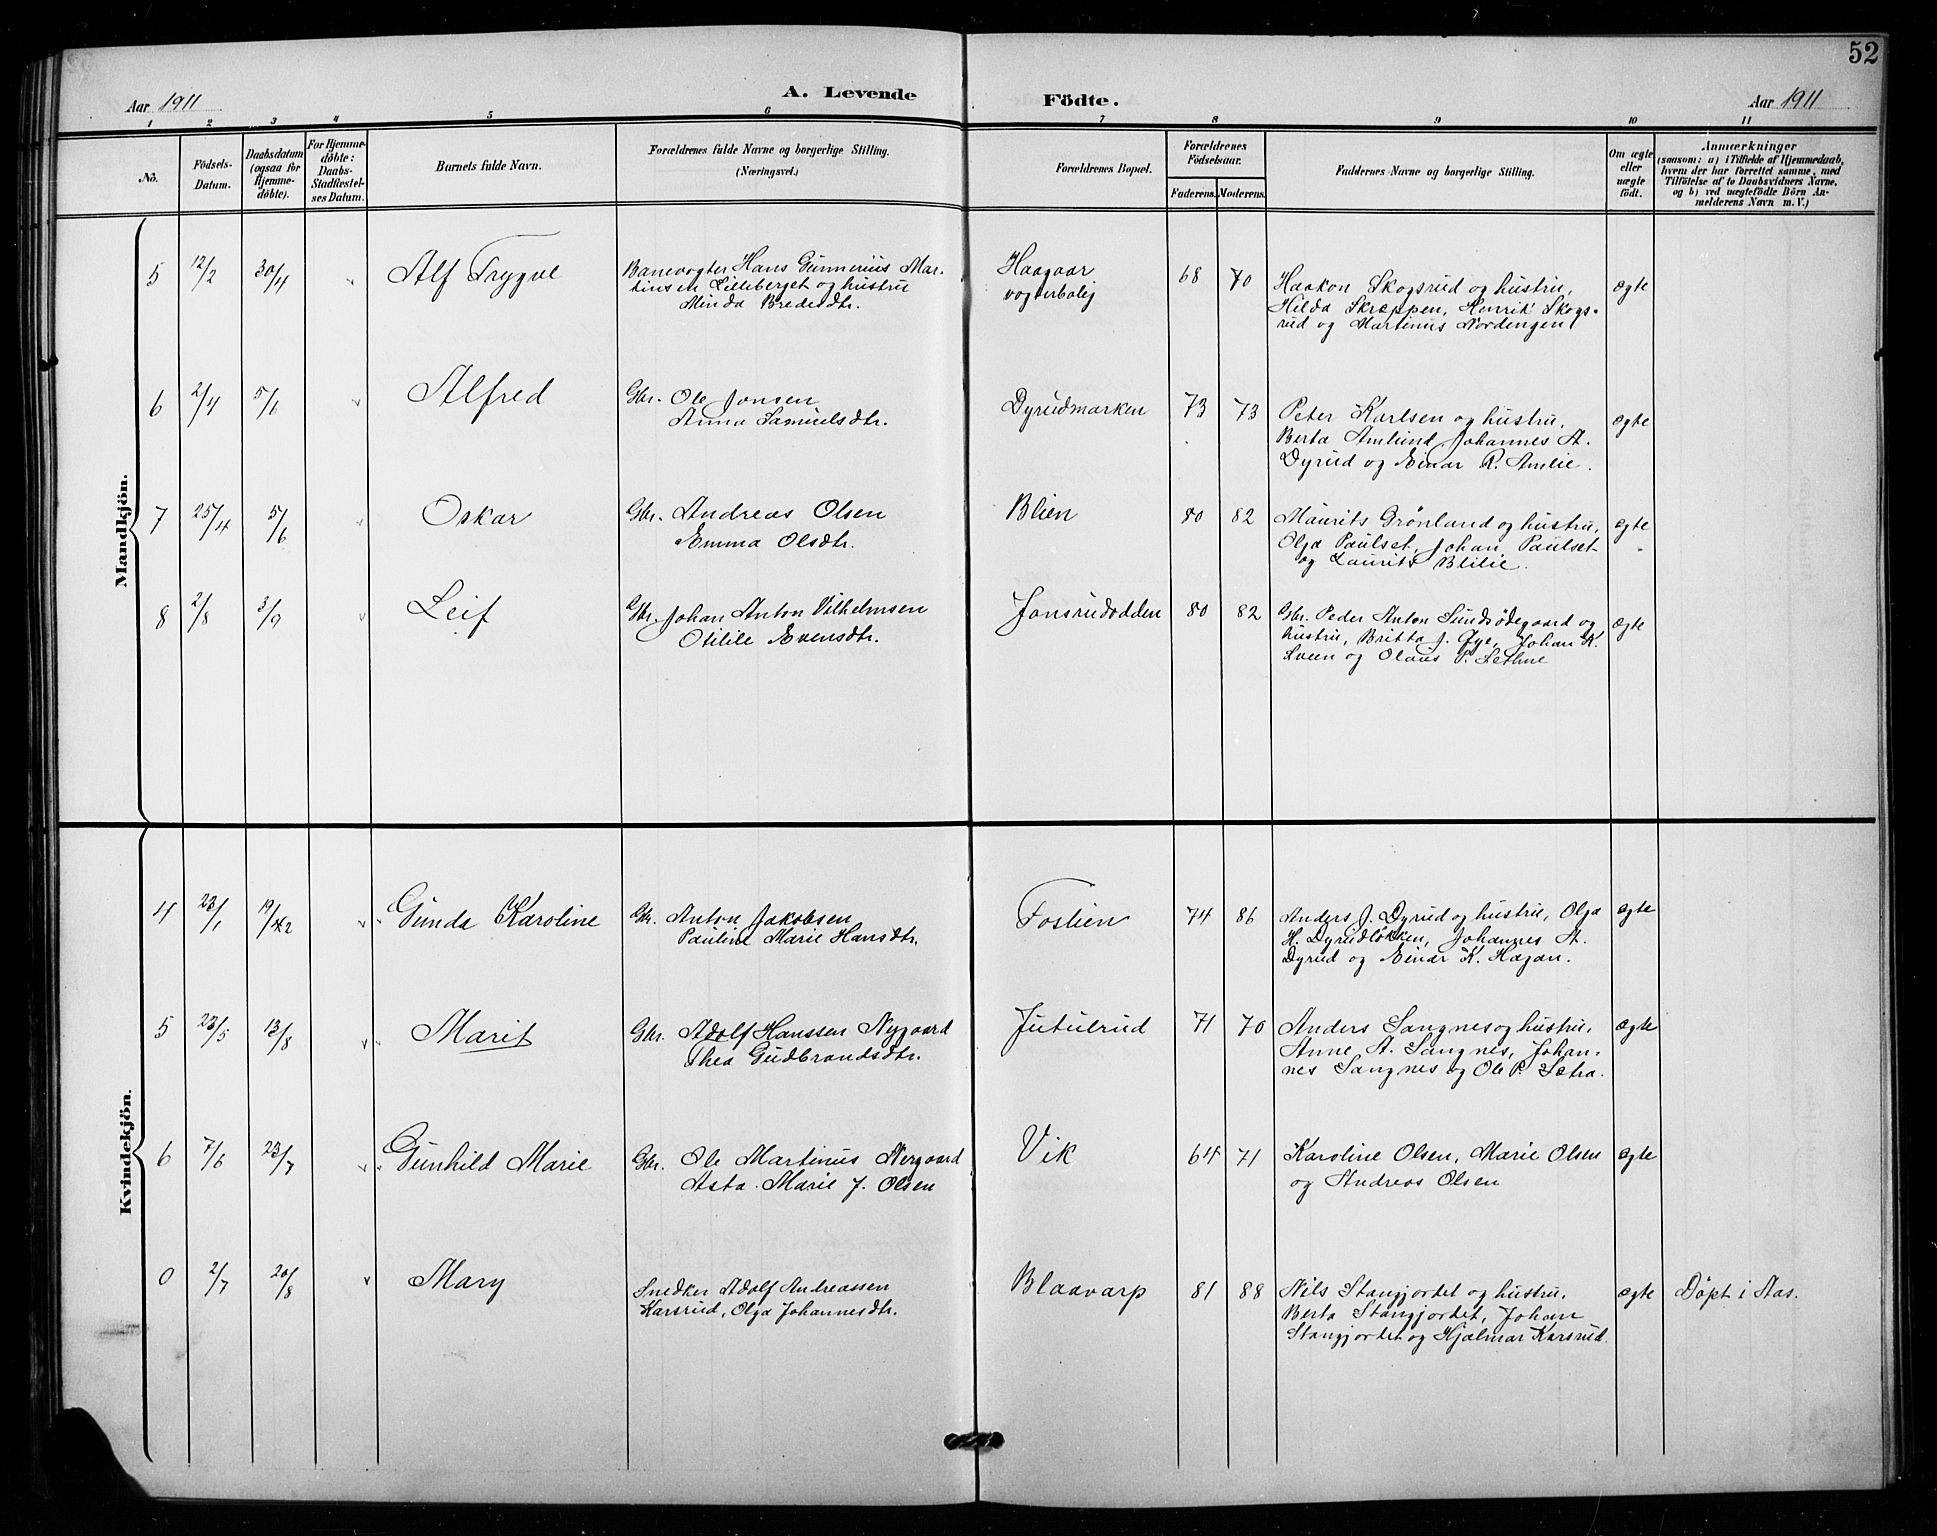 52
Aar 1911
A. Levende
Födte.
Aar 1911
1 2 3 4 5 6 7 8 9 10 11
No.
Födsels-
Datum.
Daabsdatum
(ogsaa for
Hjemme-
döbte).
For Hjemme-
döbte:
Daabs-
Stadfæstel-
ses Datum.
Barnets fulde Navn.
Forældrenes fulde Navne og borgerlige Stilling.
(Næringsvei.)
Forældrenes Bopæl.
Forældrenes
Födselsaar.
Faderens. Moderens.
Faddernes Navne og borgerlige Stilling.
Om ægte
eller
uægte
födt.
Anmærkninger
(saasom: a) i Tilfælde af Hjemmedaab,
hvem der har forrettet samme, med
Tilföielse af to Daabsvidners Navne,
og b) ved uægtefödte Börn An-
melderens Navn m. V.)
Mandkjön.
5 12/2 30/4 Alf Trygve
Banevogter Hans Gunnerius Mar-
tinsen Lilleberget og hustru
Minda Bredesdtr.
Haagaar
vogterbolig
68 70
Haakon Skogsrud og hustru,
Hilda Skræppen, Henrik Skogs-
rud og Martinus Nordengen
ægte
6 2/4 5/6 Alfred
Gbr. Ole Jonsen
Anna Samuelsdtr.
Dyrudmarken 73 73
Peter Karlsen og hustru,
Berta Amlund, Johannes A.
Dyrud og Einar R. Amlie.
ægte
7 25/4 5/6 Oskar
Gbr. Andreas Olsen
Emma Olsdtr.
Blien 80 82
Maurits Grønland og hustru,
Olga Paulset, Johan Paulset
og Laurits Blilie.
ægte
8 2/8 3/9 Leif
Gbr. Johan Anton Vilhelmsen
Otilie Evensdtr.
Jonsrudodden 80 82
Gbr. Peder Anton Sundsödegaard og
hustru, Britta J. Øye, Johan K.
Lveen og Olaus P. Sethne
ægte
Kvindekjön.
4 23/1 Gunda Karoline
Gbr. Anton Jakobsen
Pauline Marie Hansdtr.
Foslien 74 86
Anders J. Dyrud og hustru, Olga
H. Dyrudløkken, Johannes A.
Dyrud og Einar K. Hagan.
ægte
5 23/5 13/8 Marit
Gbr. Adolf Hanssen Nygaard
Thea Gudbrandsdtr.
Jutulrud 71 70
Anders Sangnes og hustru,
Anne A. Sangnes, Johan-
nes Sangnes og Ole P. Sætra.
ægte
6 7/6 23/7 Gunhild Marie
Gbr. Ole Martinus Nergaard
Asta Marie J. Olsen
Vik 64 71
Karoline Olsen, Marie Olsen
og Andreas Olsen
ægte
0 2/7 20/8 Mary
Snedker Adolf Andreassen
Karsrud, Olga Johannesdtr.
Blaavarp 81 88
Nils Stangjordet og hustru,
Berta Stangjordet, Johan
Stangjordet og Hjalmar Karsrud.
ægte Döpt i Aas.